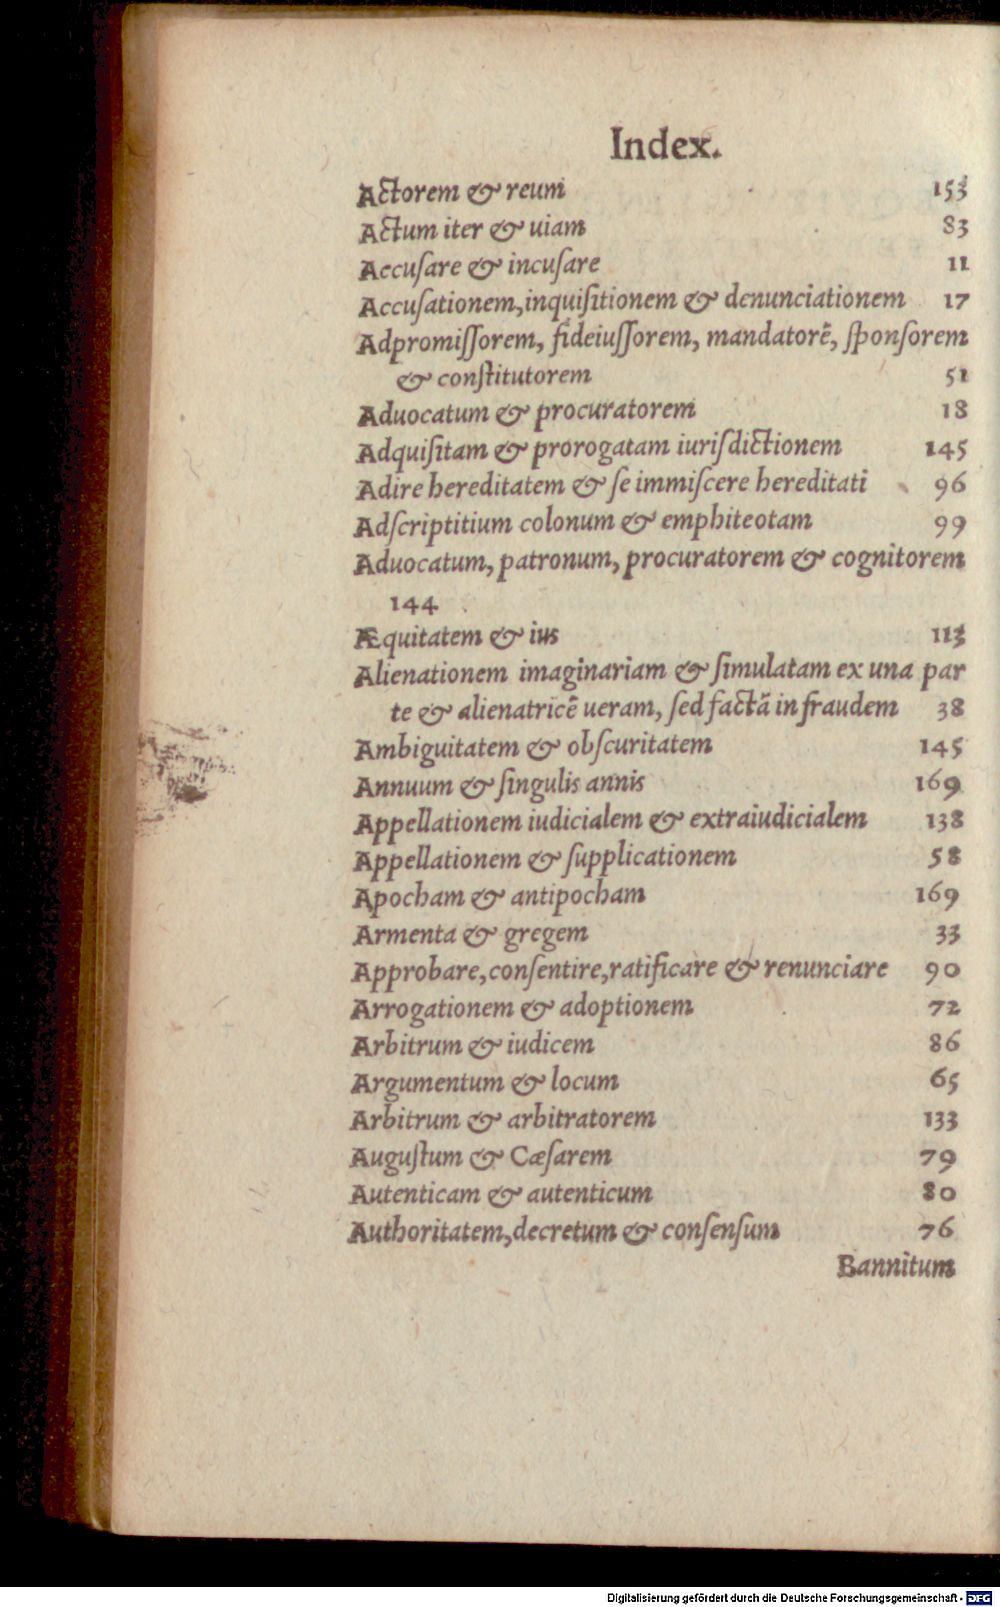 Index.
Actorem & reum 153
Actum iter & uiam 83
Accuſare & incuſare 11
Accuſationem,inquiſitionem & denunciationem 17
Adpromiſſorem, fideiuſſorem, mandatorẽ, ſponſorem
& conſtitutorem 51
Aduocatum & procuratorem 18
Adquiſitam & prorogatam iuriſdictionem 145
Adire hereditatem & ſe immiſcere hereditati 96
Adſcriptitium colonum & emphiteotam 99
Aduocatum, patronum, procuratorem & cognitorem
144
Æquitatem & ius 113
Alienationem imaginariam & ſimulatam ex una par
te & alienatricẽ ueram, ſed factã in fraudem 38
Ambiguitatem & obſcuritatem 145
Annuum & ſingulis annis 169
Appellationem iudicialem & extraiudicialem 138
Appellationem & ſupplicationem 58
Apocham & antipocham 169
Armenta & gregem 33
Approbare,conſentire,ratificare & renunciare 90
Arrogationem & adoptionem 72
Arbitrum & iudicem 86
Argumentum & locum 65
Arbitrum & arbitratorem 133
Auguſtum & Cæſarem 79
Autenticam & autenticum 80
Authoritatem,decretum & conſenſum 76
Bannitum
Digitalisierung gefördert durch die Deutsche Forschungsgemeinschaft - DFG